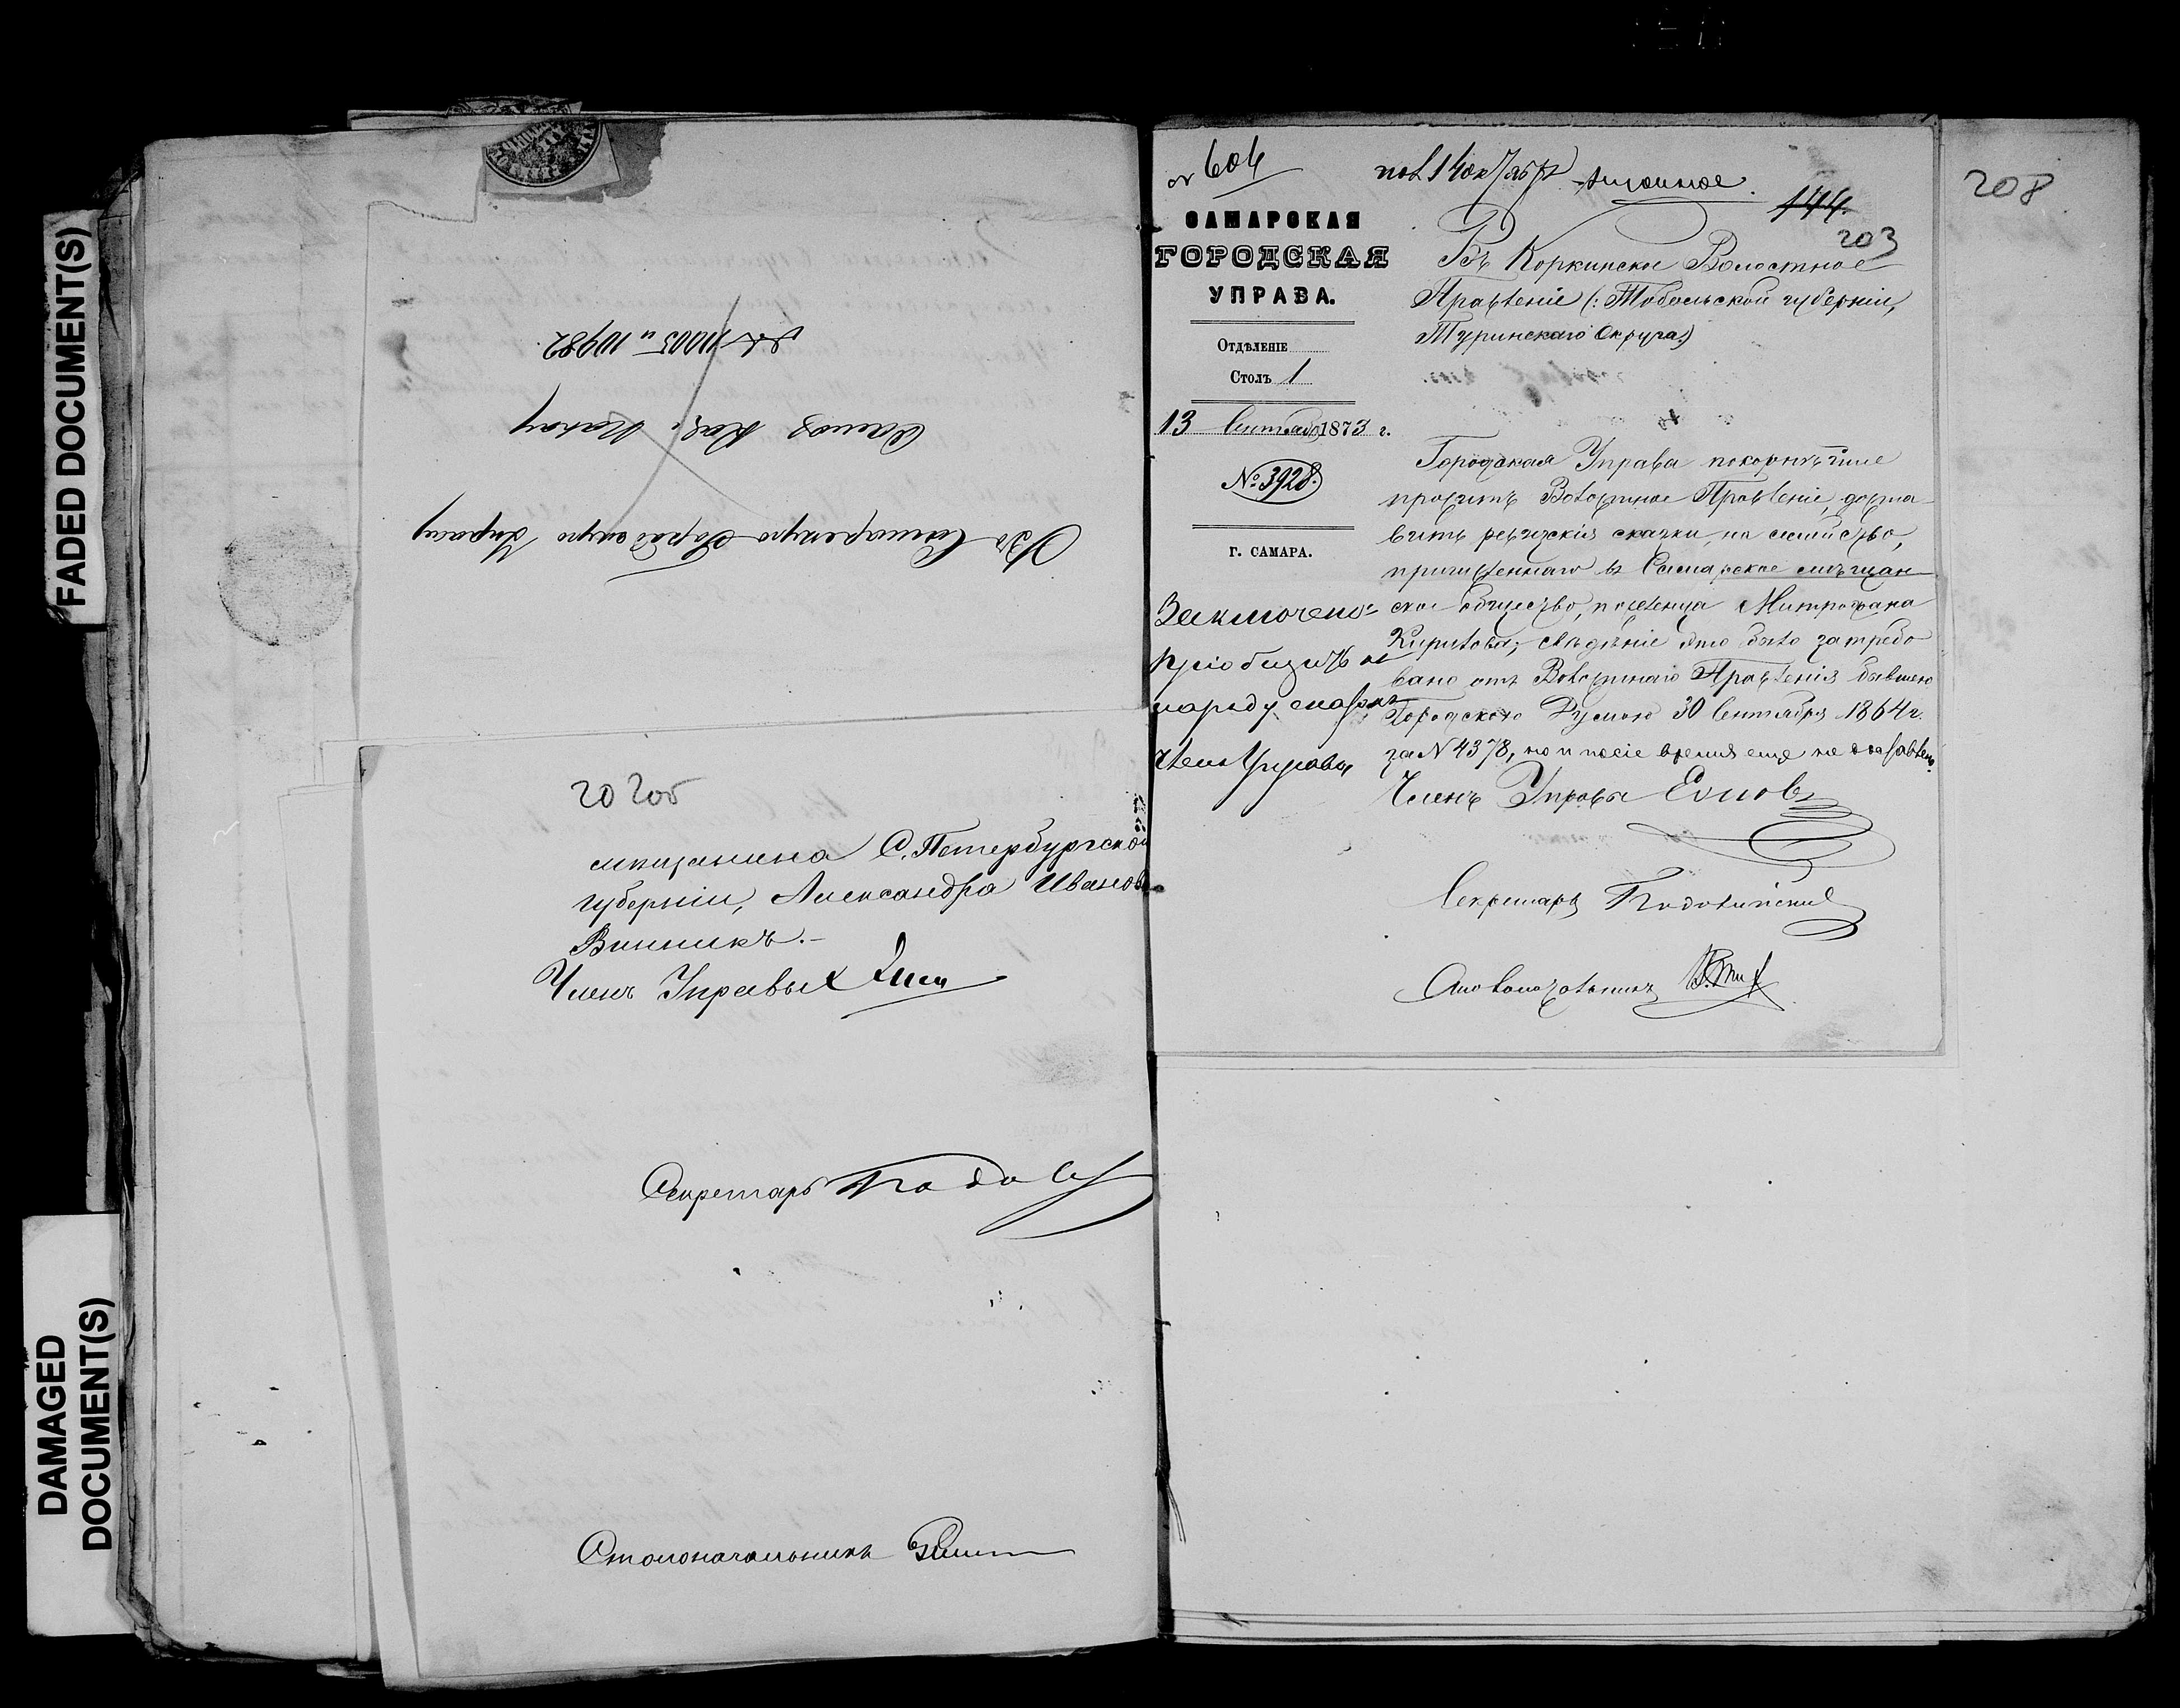 FADED DOCUMENT(S)
DAMAGED
DOCUMENT(S)
Въ Самарскую Городскую Управу
Самар. Каз. Палаты
№№ 11005 и 10982
20 205
мѣщанина С. Петербургской
губерніи, Александра Иванова
Винникъ.-
Членъ Управы
Секретарь Подо
Столоначальникъ
208
№ 604
пол. 14 октября
144.
203
САМАРСКАЯ
ГОРОДСКАЯ
УПРАВА.
Отдѣленіе
Столъ 1
13 Сентября 1873 г.
№ 3928.
Г. САМАРА.
Въ Коркинское Волостное
Правленіе (: Тобольской губерніи,
Туринскаго Округа:)
Городская Управа покорнѣйше
проситъ Волостное Правленіе, доста
вить ревизскія сказки, на семейство,
причисленнаго въ Самарское мѣщан
ское общество, поселенца Митрофана
Кирилова; свѣдѣніе это было затребо
вано отъ Волостнаго Правленія бывшею
Городскою Думою 30 Сентября 1864 г.
за № 4378, но и по сіе время еще не доставлено.
Заключено:
пріобщить къ
наряду
Членъ Управы
Членъ Управы
Секретарь
Столоначальникъ